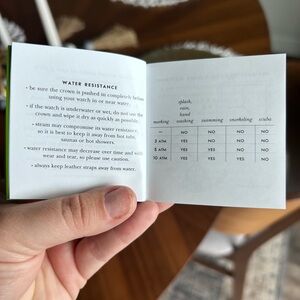 WATER RESISTANCE
• be sure the crown is pushed in completely before
using your watch in or near water.
• if the watch is underwater or wet, do not use the
crown and wipe it dry as quickly as possible.
• strain may compromise its water resistance,
so it is best to keep it away from hot tubs,
saunas or hot showers.
• water resistance may decrease over time and with
wear and tear, so please use caution.
• always keep leather straps away from water.
splash,
rain,
hand
marking washing swimming snorkeling scuba
— NO NO NO NO
3 ATM YES NO NO NO
5 ATM YES YES NO NO
10 ATM YES YES YES NO